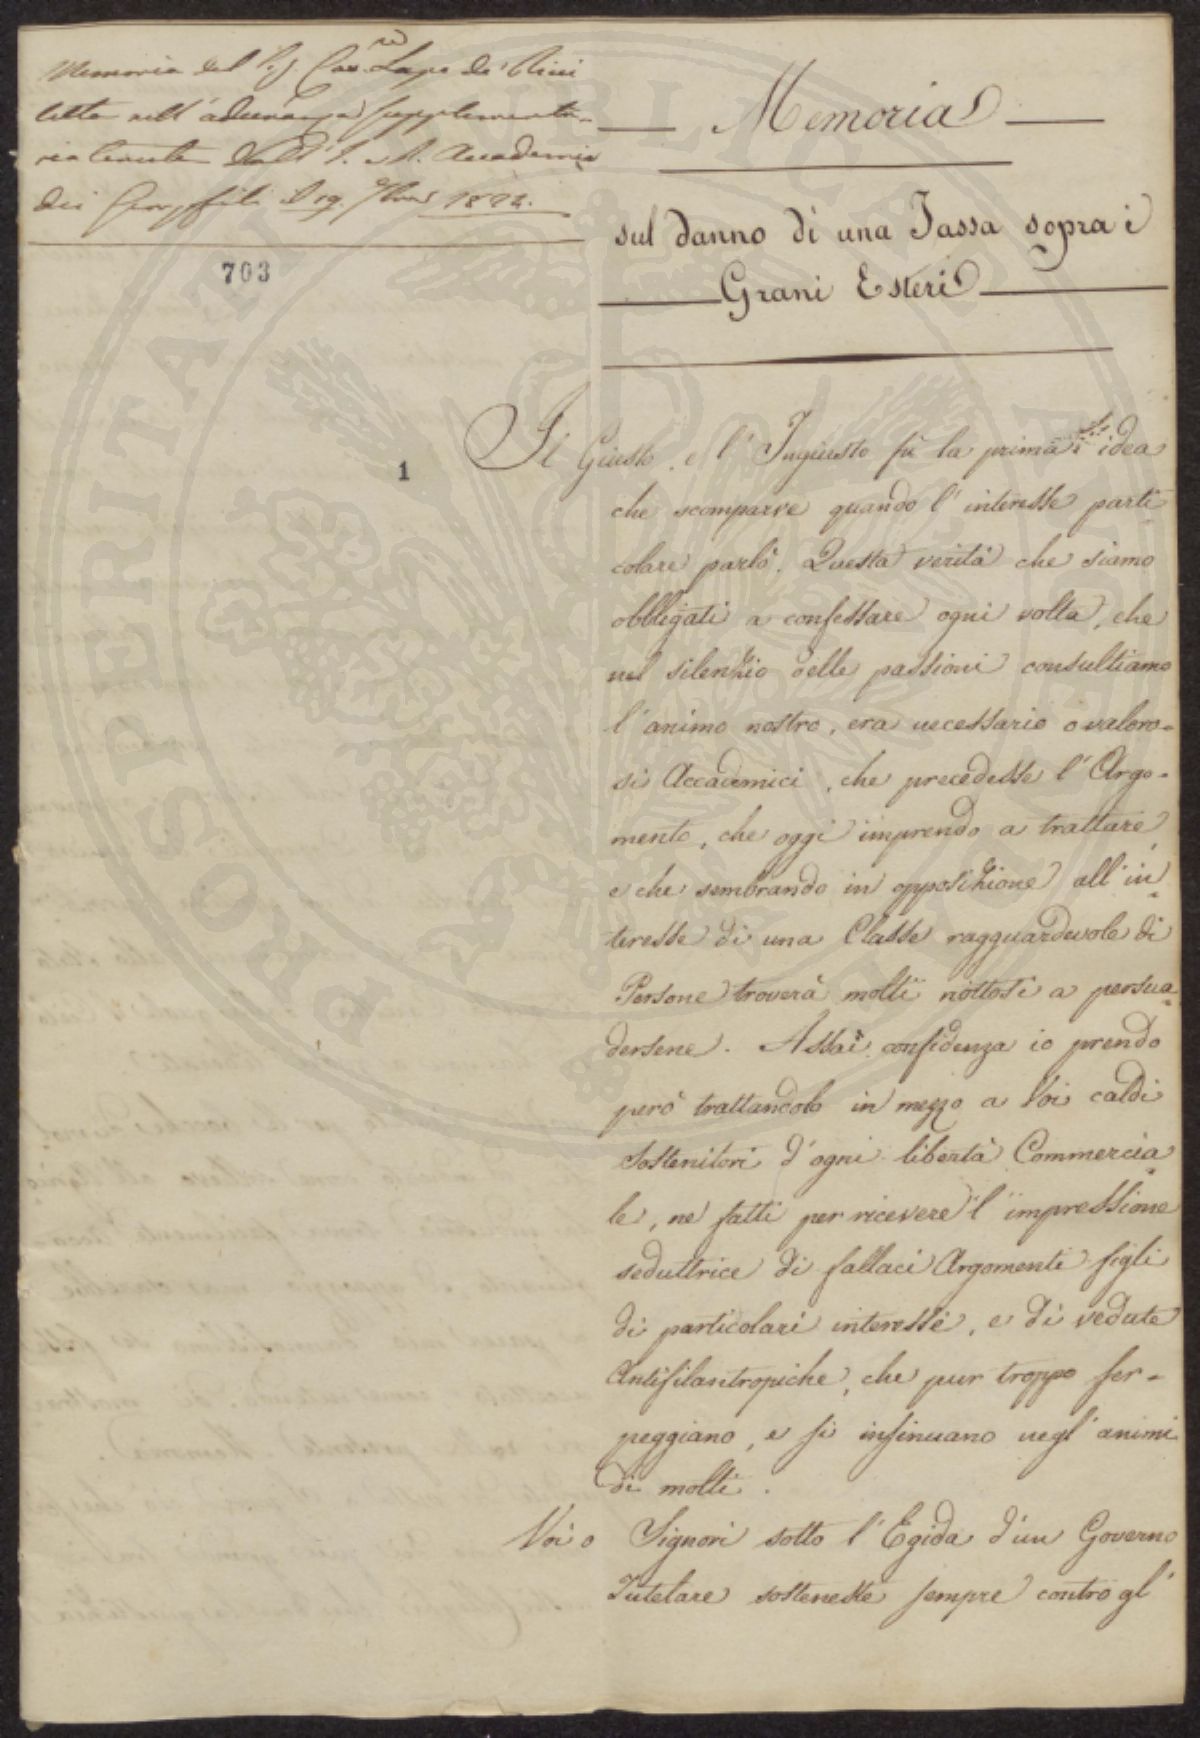 Memoria del Sig. Cav.re Lapo de' Ricci
letta nell'adunanza supplementa-
ria tenuta dall'I. e R. Accademia
dei Georgofili il 19. 7bre 1822.
703
Memoria
sul danno di una Tassa sopra i
Grani Esteri
1
Il Giusto, e l'Ingiusto fù la prima idea
che scomparve quando l'interesse parti
colare parlò. Questa verità che siamo
obbligati a confessare ogni volta, che
nel silenzio delle passioni consultiamo
l'animo nostro, era necessario o valoro-
si Accademici, che precedesse l'Argo-
mento, che oggi imprendo a trattare,
e che sembrando in opposizione all'in
teresse di una Classe ragguardevole di
Persone troverà molti rottosi a persua
dersene. Assai confidenza io prendo
però trattandolo in mezzo a Voi caldi
Sostenitori d'ogni libertà Commercia
le, ne fatti per ricevere l'impressione
seduttrice di fallaci Argomenti figli
di particolari interessi, e di vedute
Antifilantropiche, che pur troppo ser-
peggiano, e si insinuano negl'animi
di molti.
Voi o Signori sotto l'Egida d'un Governo
Tutelare sosteneste sempre contro gl'
PROSPERITATI PUBLICAE AUGENDAE